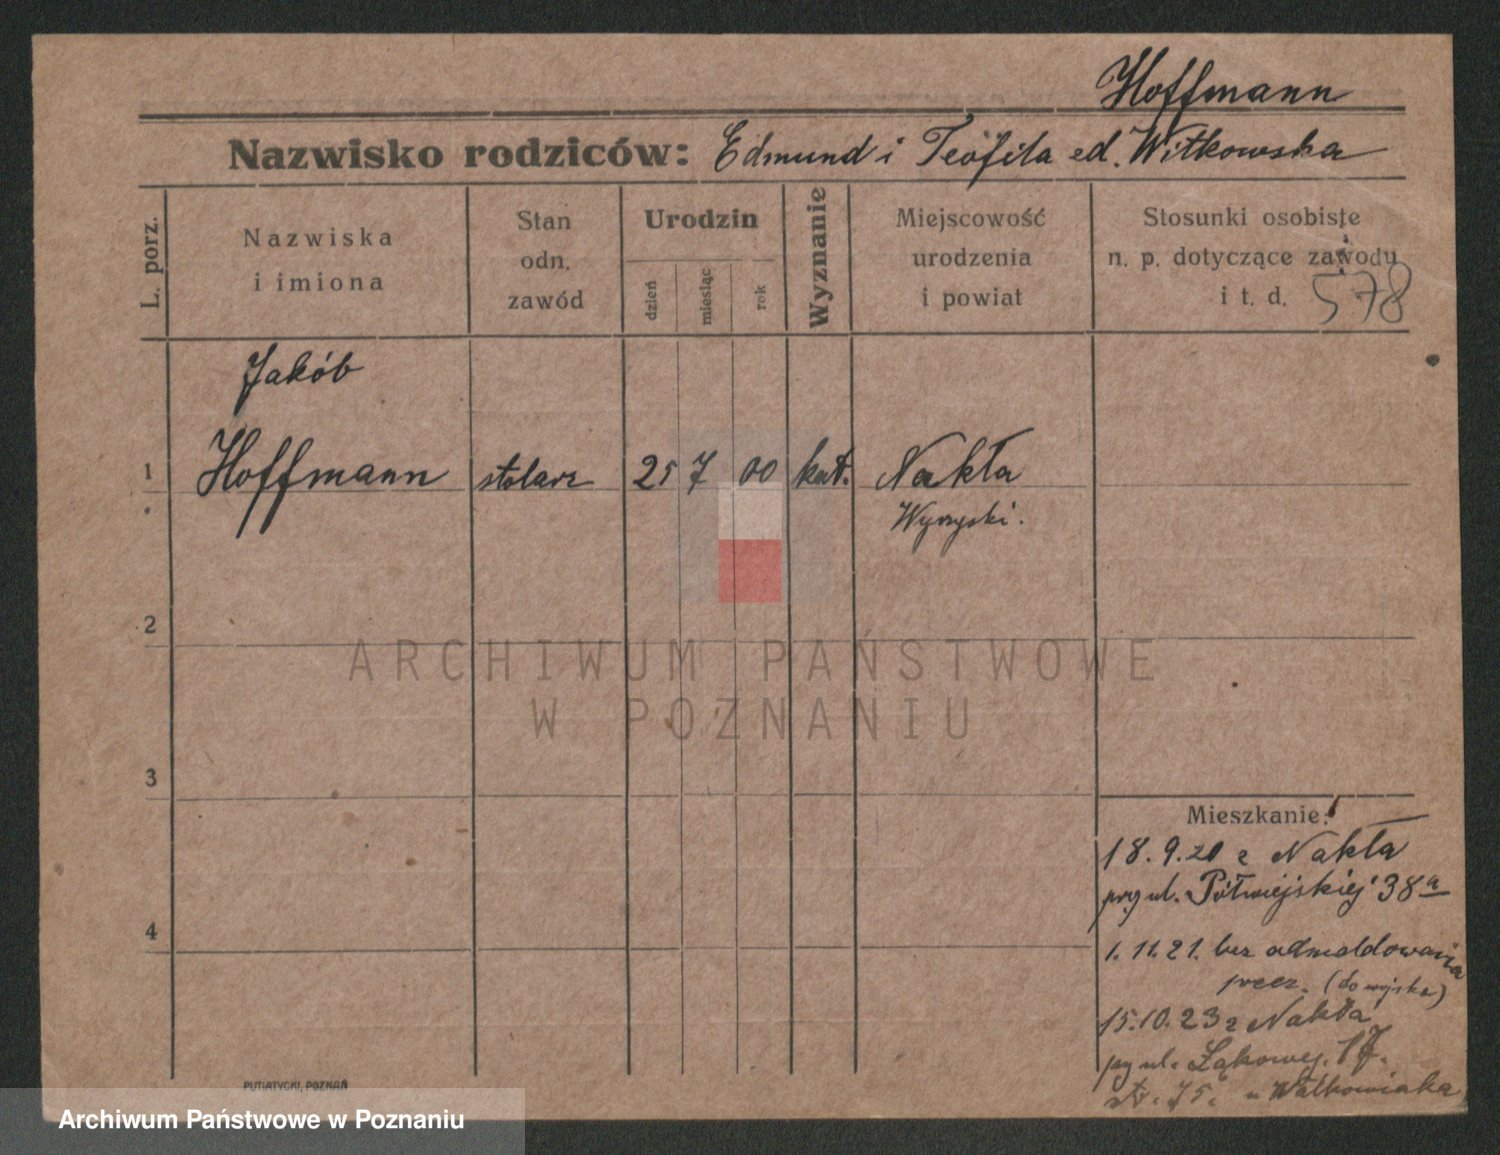 Hoffmann
Nazwisko rodziców: Edmund i Teofila ed. Witkowska
L. porz.
Nazwiska i imiona
Stan odn. zawód
Urodzin
dzień
miesiąc
rok
Wyznanie
Miejscowość urodzenia i powiat
Stosunki osobiste n. p. dotyczące zawodu i t. d.
578
Jakób
1 Hoffmann stolarz 25 7 00 kat. Nakła
Wyrzyski.
2
ARCHIWUM PAŃSTWOWE
W POZNANIU
3
Mieszkanie:
18.9.20 z Nakła
przy ul. Półwiejskiej 38a
4
1.11.21. bez odmeldowania
precz. (do wojska)
15.10.23 z Nakła
py ul. Łąkowej. 17.
u Walkowiaka
PUTIATYCKI, POZNAŃ
Archiwum Państwowe w Poznaniu